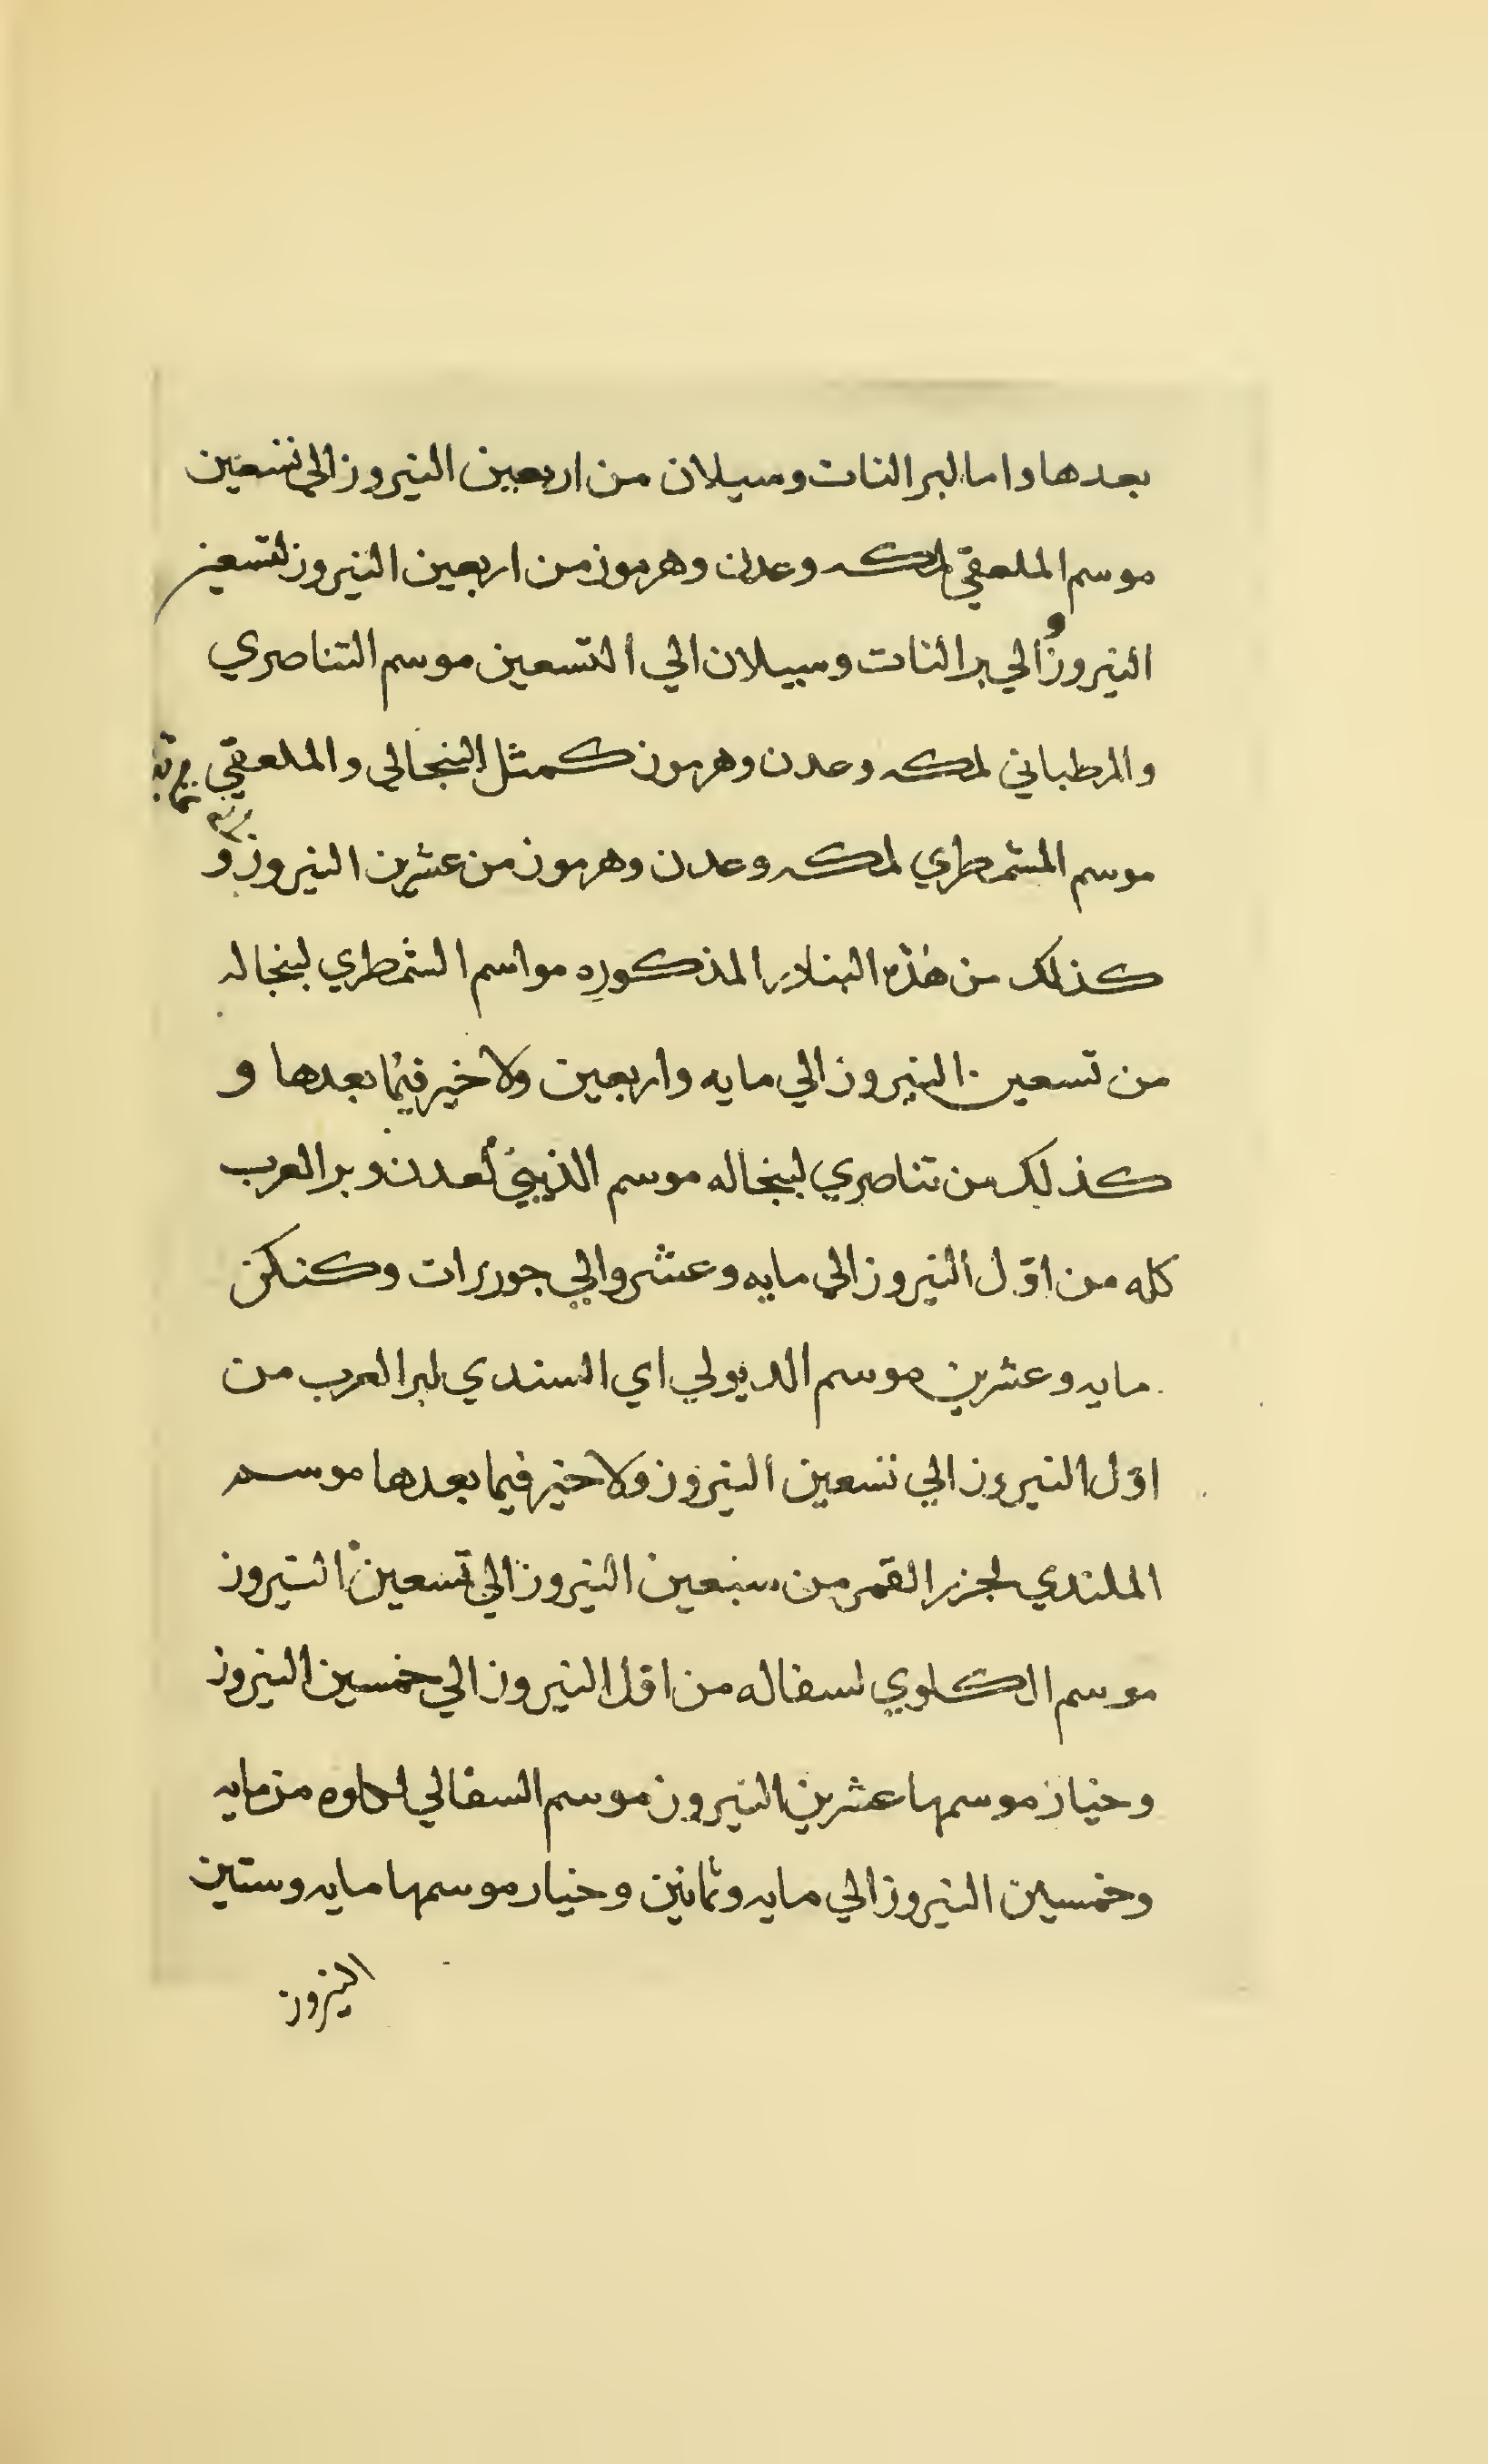 بعدها واما لبر النات وسيلان من اربعين النيروز الي تسعين
موسم الملعقي لمكه وعدن وهرموز من اربعين النيروز لتسعين
النيروز والي بر النات وسيلان الي التسعين موسم التناصري
والمرطباني لمكه وعدن وهرموز كمثل البنجالي والملعقي
موسم الشمطري لمكه وعدن وهرموز من عشرين النيروز و
كذلك من هذه البنادر المذكوره مواسم الشمطري لبنجاله
من تسعين النيروز الي مايه واربعين ولا خير فيما بعدها و
كذلك من تناصري لبنجاله موسم الذيبي لعدن وبر العرب
كله من اول النيروز الي مايه وعشر والي جوزرات وكنكن
مايه وعشرين موسم الديولي اي السندي لبر العرب من
اول النيروز الي تسعين النيروز ولا خير فيما بعدها موسم
الملندي لجزر القمر من سبعين النيروز الي تسعين النيروز
موسم الكلوي لسفاله من اول النيروز الي خمسين النيروز
وخيار موسمها عشرين النيروز موسم السفالي لكلوه من مايه
وخمسين النيروز الي مايه وثمانين وخيار موسمها مايه وستين
النيروز